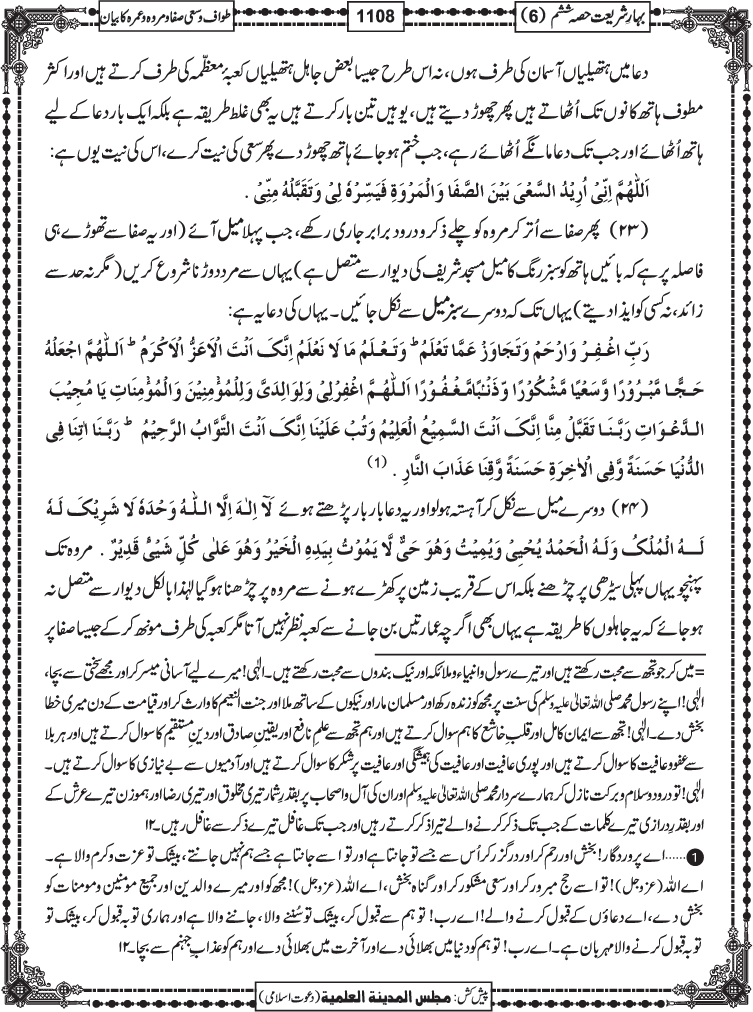 بہار شریعت حصہ ششم (6)
1108
طواف وسعی صفا و مروہ و عمرہ کا بیان
دعا میں ہتھیلیاں آسمان کی طرف ہوں، نہ اس طرح جیسا بعض جاہل ہتھیلیاں کعبۂ معظّمہ کی طرف کرتے ہیں اور اکثر
مطوف ہاتھ کانوں تک اُٹھاتے ہیں پھر چھوڑ دیتے ہیں، یوہیں تین بار کرتے ہیں یہ بھی غلط طریقہ ہے بلکہ ایک بار دعا کے لیے
ہاتھ اُٹھائے اور جب تک دعا مانگے اُٹھائے رہے، جب ختم ہو جائے ہاتھ چھوڑ دے پھر سعی کی نیت کرے، اس کی نیت یوں ہے:
اَللّٰھُمَّ اِنِّیْ اُرِیْدُ السَّعْیَ بَیْنَ الصَّفَا وَالْمَرْوَۃِ فَیَسِّرْہُ لِیْ وَتَقَبَّلْہُ مِنِّیْ .
(۲۳) پھر صفا سے اُتر کر مروہ کو چلے ذکر و درود برابر جاری رکھے، جب پہلا میل آئے (اور یہ صفا سے تھوڑے ہی
فاصلہ پر ہے کہ بائیں ہاتھ کو سبز رنگ کا میل مسجد شریف کی دیوار سے متصل ہے) یہاں سے مرد دوڑنا شروع کریں (مگر نہ حد سے
زائد، نہ کسی کو ایذا دیتے) یہاں تک کہ دوسرے سبز میل سے نکل جائیں۔ یہاں کی دعا یہ ہے:
رَبِّ اغْفِرْ وَارْحَمْ وَتَجَاوَزْ عَمَّا تَعْلَمُ ؕ وَتَعْلَمُ مَا لَا نَعْلَمُ اِنَّکَ اَنْتَ الْاَعَزُّ الْاَکْرَمُ ؕ اَللّٰھُمَّ اجْعَلْہُ
حَجًّا مَّبْرُوْرًا وَّسَعْیًا مَّشْکُوْرًا وَّذَنْبًا مَّغْفُوْرًا اَللّٰھُمَّ اغْفِرْلِیْ وَلِوَالِدَیَّ وَلِلْمُؤْمِنِیْنَ وَالْمُؤْمِنَاتِ یَا مُجِیْبَ
الدَّعْوَاتِ رَبَّنَا تَقَبَّلْ مِنَّا اِنَّکَ اَنْتَ السَّمِیْعُ الْعَلِیْمُ وَتُبْ عَلَیْنَا اِنَّکَ اَنْتَ التَّوَّابُ الرَّحِیْمُ ؕ رَبَّنَا اٰتِنَا فِی
الدُّنْیَا حَسَنَۃً وَّفِی الْاٰخِرَۃِ حَسَنَۃً وَّقِنَا عَذَابَ النَّارِ . (1)
(۲۴) دوسرے میل سے نکل کر آہستہ ہو لو اور یہ دعا بار بار پڑھتے ہوئے لَآ اِلٰـہَ اِلَّا اللّٰہُ وَحْدَہٗ لَا شَرِیْکَ لَـہٗ
لَـہُ الْمُلْکُ وَلَـہُ الْحَمْدُ یُحْیِیْ وَیُمِیْتُ وَھُوَ حَیٌّ لَّا یَمُوْتُ بِیَدِہِ الْخَیْرُ وَھُوَ عَلٰی کُلِّ شَیْئٍ قَدِیْرٌ . مروہ تک
پہنچو یہاں پہلی سیڑھی پر چڑھنے بلکہ اس کے قریب زمین پر کھڑے ہونے سے مروہ پر چڑھنا ہو گیا لہٰذا بالکل دیوار سے متصل نہ
ہو جائے کہ یہ جاہلوں کا طریقہ ہے یہاں بھی اگرچہ عمارتیں بن جانے سے کعبہ نظر نہیں آتا مگر کعبہ کی طرف مونھ کر کے جیسا صفا پر
= میں کر جو تجھ سے محبت رکھتے ہیں اور تیرے رسول و انبیاء و ملائکہ اور نیک بندوں سے محبت رکھتے ہیں۔ الٰہی! میرے لیے آسانی میسر کر اور مجھے سختی سے بچا،
الٰہی! اپنے رسول محمد صلی اللہ تعالیٰ علیہ وسلم کی سنت پر مجھ کو زندہ رکھ اور مسلمان مار اور نیکوں کے ساتھ ملا اور جنت النعیم کا وارث کر اور قیامت کے دن میری خطا
بخش دے۔ الٰہی! تجھ سے ایمانِ کامل اور قلبِ خاشع کا ہم سوال کرتے ہیں اور ہم تجھ سے علمِ نافع اور یقینِ صادق اور دینِ مستقیم کا سوال کرتے ہیں اور ہر بلا
سے عفو و عافیت کا سوال کرتے ہیں اور پوری عافیت اور عافیت کی ہمیشگی اور عافیت پر شکر کا سوال کرتے ہیں اور آدمیوں سے بے نیازی کا سوال کرتے ہیں۔
الٰہی! تو درود و سلام و برکت نازل کر ہمارے سردار محمد صلی اللہ تعالیٰ علیہ وسلم اور ان کی آل و اصحاب پر بقدر شمار تیری مخلوق اور تیری رضا اور ہم وزن تیرے عرش کے
اور بقدر درازی تیرے کلمات کے جب تک ذکر کرنے والے تیرا ذکر کرتے رہیں اور جب تک غافل تیرے ذکر سے غافل رہیں۔ ۱۲
1 ......اے پروردگار! بخش اور رحم کر اور درگزر کر اُس سے جسے تو جانتا ہے اور تو اسے جانتا ہے جسے ہم نہیں جانتے، بیشک تو عزت و کرم والا ہے۔
اے اللہ (عزوجل)! تو اسے حج مبرور کر اور سعی مشکور کر اور گناہ بخش، اے اللہ (عزوجل)! مجھ کو اور میرے والدین اور جمیع مومنین و مومنات کو
بخش دے، اے دعاؤں کے قبول کرنے والے! اے رب! تو ہم سے قبول کر، بیشک تو سُننے والا، جاننے والا ہے اور ہماری توبہ قبول کر، بیشک تو
توبہ قبول کرنے والا مہربان ہے۔ اے رب! تو ہم کو دنیا میں بھلائی دے اور آخرت میں بھلائی دے اور ہم کو عذابِ جہنم سے بچا۔ ۱۲
پیش کش: مجلس المدینۃ العلمیۃ (دعوتِ اسلامی)